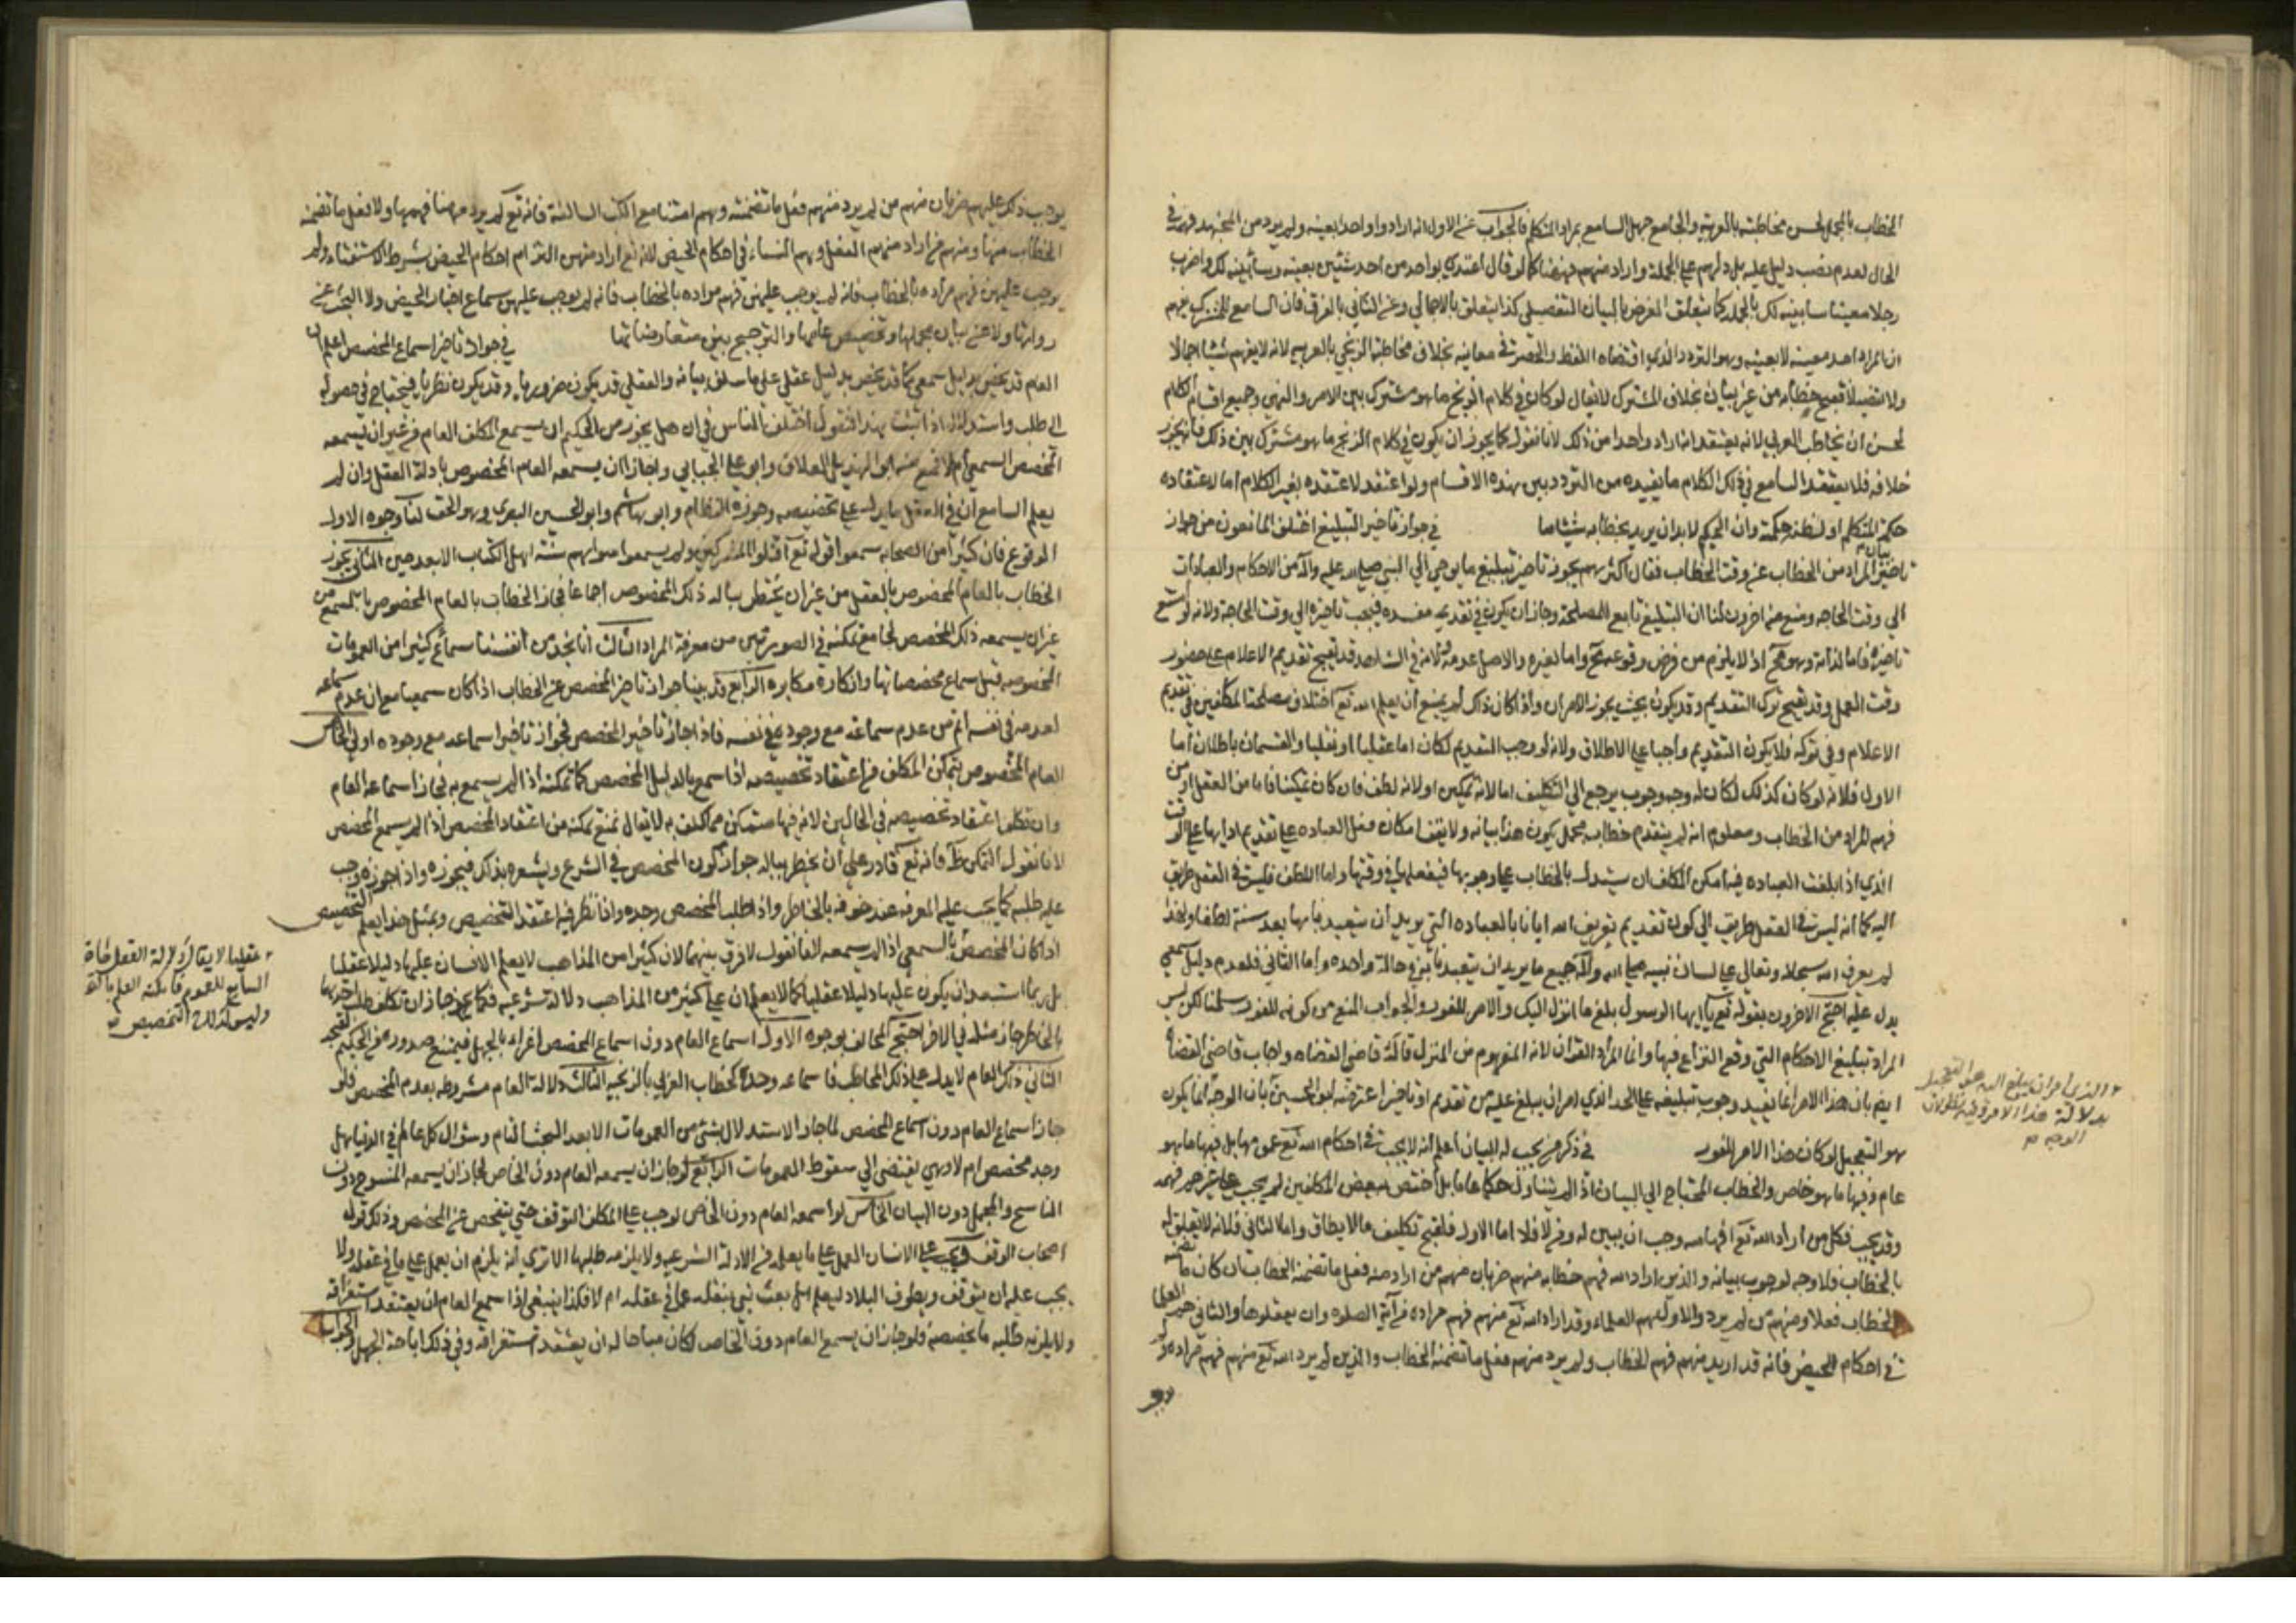 الخطاب بالمجمل لحسن مخاطبته بالعربية والجامع جهل السامع بمراد المتكلم فالجواب عن الاول انه اراد واواحدا بعينه ولم يرد من المجتهد فهمه في
الحال لعدم نصب دليل عليه بل دلهم على الجملة واراد منهم فهمها كما لو قال اعتدي بواحد من احد شيئين بعينه وسأبينه لك واضرب
رجلا معينا سابينه لك بالجملة كما يتعلق الغرض بالبيان التفصيلي كذا يتعلق بالاجمالي وعن الثاني بالفرق فان السامع للمشترك يفهم
ان المراد احد معينيه لا بعينه وهو التردد الذي اقتضاه اللفظ والحصر في معانيه بخلاف مخاطبة الزنجي بالعربيه لانه لا يفهم شيئا اجمالا
ولا تفصيلا فقبح خطابه من غير بيان بخلاف المشترك لا يقال لو كان في كلام الزنج ما هو مشترك بين الامر والنهي وجميع اقسام الكلام
لحسن ان يخاطب العربي لانه يعتقد انه اراد واحدا من ذلك لانا نقول كما يجوز ان يكون في كلام الزنج ما هو مشترك بين ذلك فانه يجوز
خلافه فلا يعتقد السامع في ذلك الكلام ما يفيده من التردد بين هذه الاقسام ولو اعتقد لاعتقده بغير الكلام اما لاعتقاده
حكمة المتكلم او لظنه حكمته وان الحكيم لا بد ان يريد بخطابه شيئا ما في جواز تاخير التبليغ اختلف المانعون من جواز
تاخير بيان المراد من الخطاب عن وقت الخطاب فقال اكثرهم يجوز تاخير تبليغ ما يوحي الي النبي صلى الله عليه وآله من الاحكام والعبادات
الي وقت الحاجه ومنع منه اخرون لنا ان التبليغ تابع للمصلحة وجاز ان يكون في تقديمه مفسده فيجب تاخيره الي وقت الحاجة ولانه لو امتنع
تاخيره فاما لذاته وهو مح اذ لا يلزم من فرض وقوعه مح واما لغيره والاصل عدمه ولانه في الشاهد قد يقبح تقديم الاعلام على حضور
وقت العمل وقد يقبح ترك التقديم وقد يكون بحيث يجوز الامران واذا كان ذلك لم يمتنع ان يعلم الله تع اختلاف مصلحة المكلفين في تقديم
الاعلام وفي تركه فلا يكون التقديم واجبا على الاطلاق ولانه لو وجب التقديم لكان اما عقليا او نقليا والقسمان باطلان اما
الاول فلانه لو كان كذلك لكان له وجه وجوب يرجع الي التكليف اما لانه تمكين او لانه لطف فان كان تمكينا فاما من الفعل او من
فهم المراد من الخطاب ومعلوم انه لم يتقدم خطاب مجمل يكون هذا بيانه ولا يقف امكان فعل العباده على تقديم ادايها على الوقت
الذي اذا بلغت العباده فيه امكن المكلف ان يستدل بالخطاب على وجوبها فيفعلها في وقتها واما اللطف فليس في العقل طريق
اليه كما انه ليس في العقل طريق الي كون تقديم تعريف الله ايانا بالعباده التي يريد ان يتعبدنا بها بعد سنة لطفا ولهذا
لم يعرف الله سبحانه وتعالي على لسان نبيه صلى الله عليه وآله جميع ما يريد ان يتعبدنا به في حالة واحده واما الثاني فلعدم دليل سمعي
يدل عليه احتج الاخرون بقوله تع يا ايها الرسول بلغ ما انزل اليك والامر للفور والجواب المنع من كونه للفور سلمنا لكن ليس
المراد تبليغ الاحكام التي وقع النزاع فيها وانما المراد القران لانه المفهوم من المنزل قاله قاضي القضاه واجاب قاضي القضاة
ايضا بان هذا الامر انما يفيد وجوب تبليغه على الحد الذي امر ان يبلغ عليه من تقديم او تاخير اعترضه ابو الحسين بان الوجه انما يكون
هو التعجيل لو كان هذا الامر للفور في ذكر من يجب له البيان اعلم انه لا يجب في احكام الله تع عمومها بل فيها ما هو
عام وفيها ما هو خاص والخطاب المحتاج الي البيان اذا لم يتناول حكما عاما بل اختص ببعض المكلفين لم يجب على غيرهم فهمه
وقد يجب فكل من اراد الله تع افهامه وجب ان يبين له ومن لا فلا اما الاول فلقبح تكليف ما لا يطاق واما الثاني فلانه لا تعلق له
بالخطاب فلا وجه لوجوب بيانه والذين اراد الله فهم خطابه منهم ضربان منهم من اراد منه فعل ما تضمنه الخطاب ان كان ما تضمنه
الخطاب فعلا ومنهم من لم يرد والاول هم العلماء وقد اراد الله تع منهم فهم مراده من آية الصلوه وان يفعلوها والثاني هم العلما
في احكام الحيض فانه قد اريد منهم فهم الخطاب ولم يرد منهم فعل ما تضمنه الخطاب والذين لم يرد الله تع منهم فهم مراده ولم
والذي امر ان يبلغ اليه هو التعجيل
بدلالة هذا الامر
الوجه
يوجب ذلك عليهم ضربان منهم من لم يرد منهم فعل ما تضمنته وهم امتنا مع الكتب السالفة فانه تع لم يرد منا فهمها ولا فعل ما تضمنه
الخطاب منها ومنهم من اراد منهم الفعل وهم النساء في احكام الحيض لانه تع اراد منهن التزام احكام الحيض بشرط الاستفتاء ولم
يوجب عليهن فهم مراده بالخطاب فانه لم يوجب عليهن فهم مراده بالخطاب فانه لم يوجب عليهن سماع اخبار الحيض ولا البحث عن
رواتها ولا عن بيان مجملها وتخصيص عامها والترجيح بين متعارضاتها في جواز تاخير اسماع المخصص اعلم ان
العام قد يخص بدليل سمعي كما قد يخص بدليل عقلي على ما سلف بيانه والعقلي قد يكون ضروريا وقد يكون نظريا فيحتاج في حصوله
الى طلب واستدلال اذا ثبت هذا فنقول اختلف الناس في ان هل يجوز من الحكيم ان يسمع المكلف العام من غير ان يسمعه
المخصص السمعي ام لا فمنع منه ابو الهذيل العلاف وابو علي الجبائي واجازا ان يسمعه العام المخصوص بادلة العقل وان لم
يعلم السامع ان في العقل ما يدل على تخصيصه وجوزه النظام وابو هاشم وابو الحسين البصري وهو الحق لنا وجوه الاول
الوقوع فان كثيرا من الصحابه سمعوا قوله تع اقتلوا المشركين ولم يسمعوا سنوا بهم سنة اهل الكتاب الا بعد حين الثاني يجوز
الخطاب بالعام المخصوص بالعقل من غير ان يخطر بباله ذلك المخصوص اجماعا فجاز الخطاب بالعام المخصوص بالسمع من
غير ان يسمعه ذلك المخصص لجامع تمكنه في الصورتين من معرفة المراد الثالث انا نجد من انفسنا سماع كثير من العمومات
المخصوصه قبل سماع مخصصاتها وانكاره مكابره الرابع قد بينا جواز تاخير المخصص عن الخطاب اذا كان سمعيا مع ان عدم سماعه
لعدمه في نفسه اتم من عدم سماعه مع وجوده في نفسه فاذا جاز تاخير المخصص فجواز تاخير اسماعه مع وجوده اولي الخامس
العام المخصوص يتمكن المكلف من اعتقاد تخصيصه اذا سمع بالدليل المخصص كما تمكنه اذا لم يسمع به فجاز اسماعه العام
وان تكلف اعتقاد تخصيصه في الحالين لانه فيها متمكن مما كلف به لا يقال نمنع تمكنه من اعتقاد المخصص اذا لم يسمع المخصص
لانا نقول التمكن ظ فانه تع قادر على ان يخطر بباله جواز كون المخصص في الشرع ويشعره بذلك فيجوزه واذا جوزه وجب
عليه طلبه كما يجب عليه المعرفه عند خوفه بالخاطر واذا طلب المخصص وجده واذا نظر فيه اعتقد التخصيص وبمثل هذا يعلم التخصيص
اذا كان المخصص بالسمعي اذا لم يسمعه لانا نقول لا فرق بينهما لان كثيرا من المذاهب لا يعلم الانسان عليها دليلا عقليا
بل ربما استبعد ان يكون عليها دليلا عقليا كما لا يعلم ان على كثير من المذاهب دلالة شرعيه فكما جاز ان تكلف طلب احديهما
بالخاطر جاز مثله في الاخر احتج المخالف بوجوه الاول اسماع العام دون اسماع المخصص اغراء بالجهل فيمتنع صدوره من الحكيم لقبحه
الثاني ذكر العام لا يدل على ذلك المخاطب فاسماعه وحده كخطاب العربي بالزنجيه الثالث دلالة العام مشروطه بعدم المخصص فلو
جاز اسماع العام دون اسماع المخصص لما جاز الاستدلال بشيء من العمومات الا بعد البحث التام وسؤال كل عالم في الدنيا هل
وجد مخصص ام لا وهي يفتضي الي سقوط العمومات الرابع لو جاز ان يسمعه العام دون الخاص لجاز ان يسمعه المنسوخ دون
الناسخ والمجمل دون البيان الخامس لو اسمعه العام دون الخاص لوجب على المكلف التوقف حتي يتفحص عن المخصص وذلك قول
اصحاب الوقف يجب على الانسان العمل على ما يعلمه من الادلة الشرعيه ولا يلزمه طلبها الا تري انه يلزم ان يعمل على ما في عقله ولا
يجب عليه ان يتوقف ويطوف البلاد ليعلم هل بعث نبي ينقله عما في عقله ام لا فكذا ينبغي اذا سمع العام ان يعتقد استغراقه
ولا يلزمه طلبه ما يخصصه فلو جاز ان يسمع العام دون الخاص لكان مباحا له ان يعتقد استغراقه وفي ذلك اباحة الجهل والجواب
عقليا لا يقال دلالة العقل
السامع للعموم فامكنه العلم
وليس كذلك التخصيص